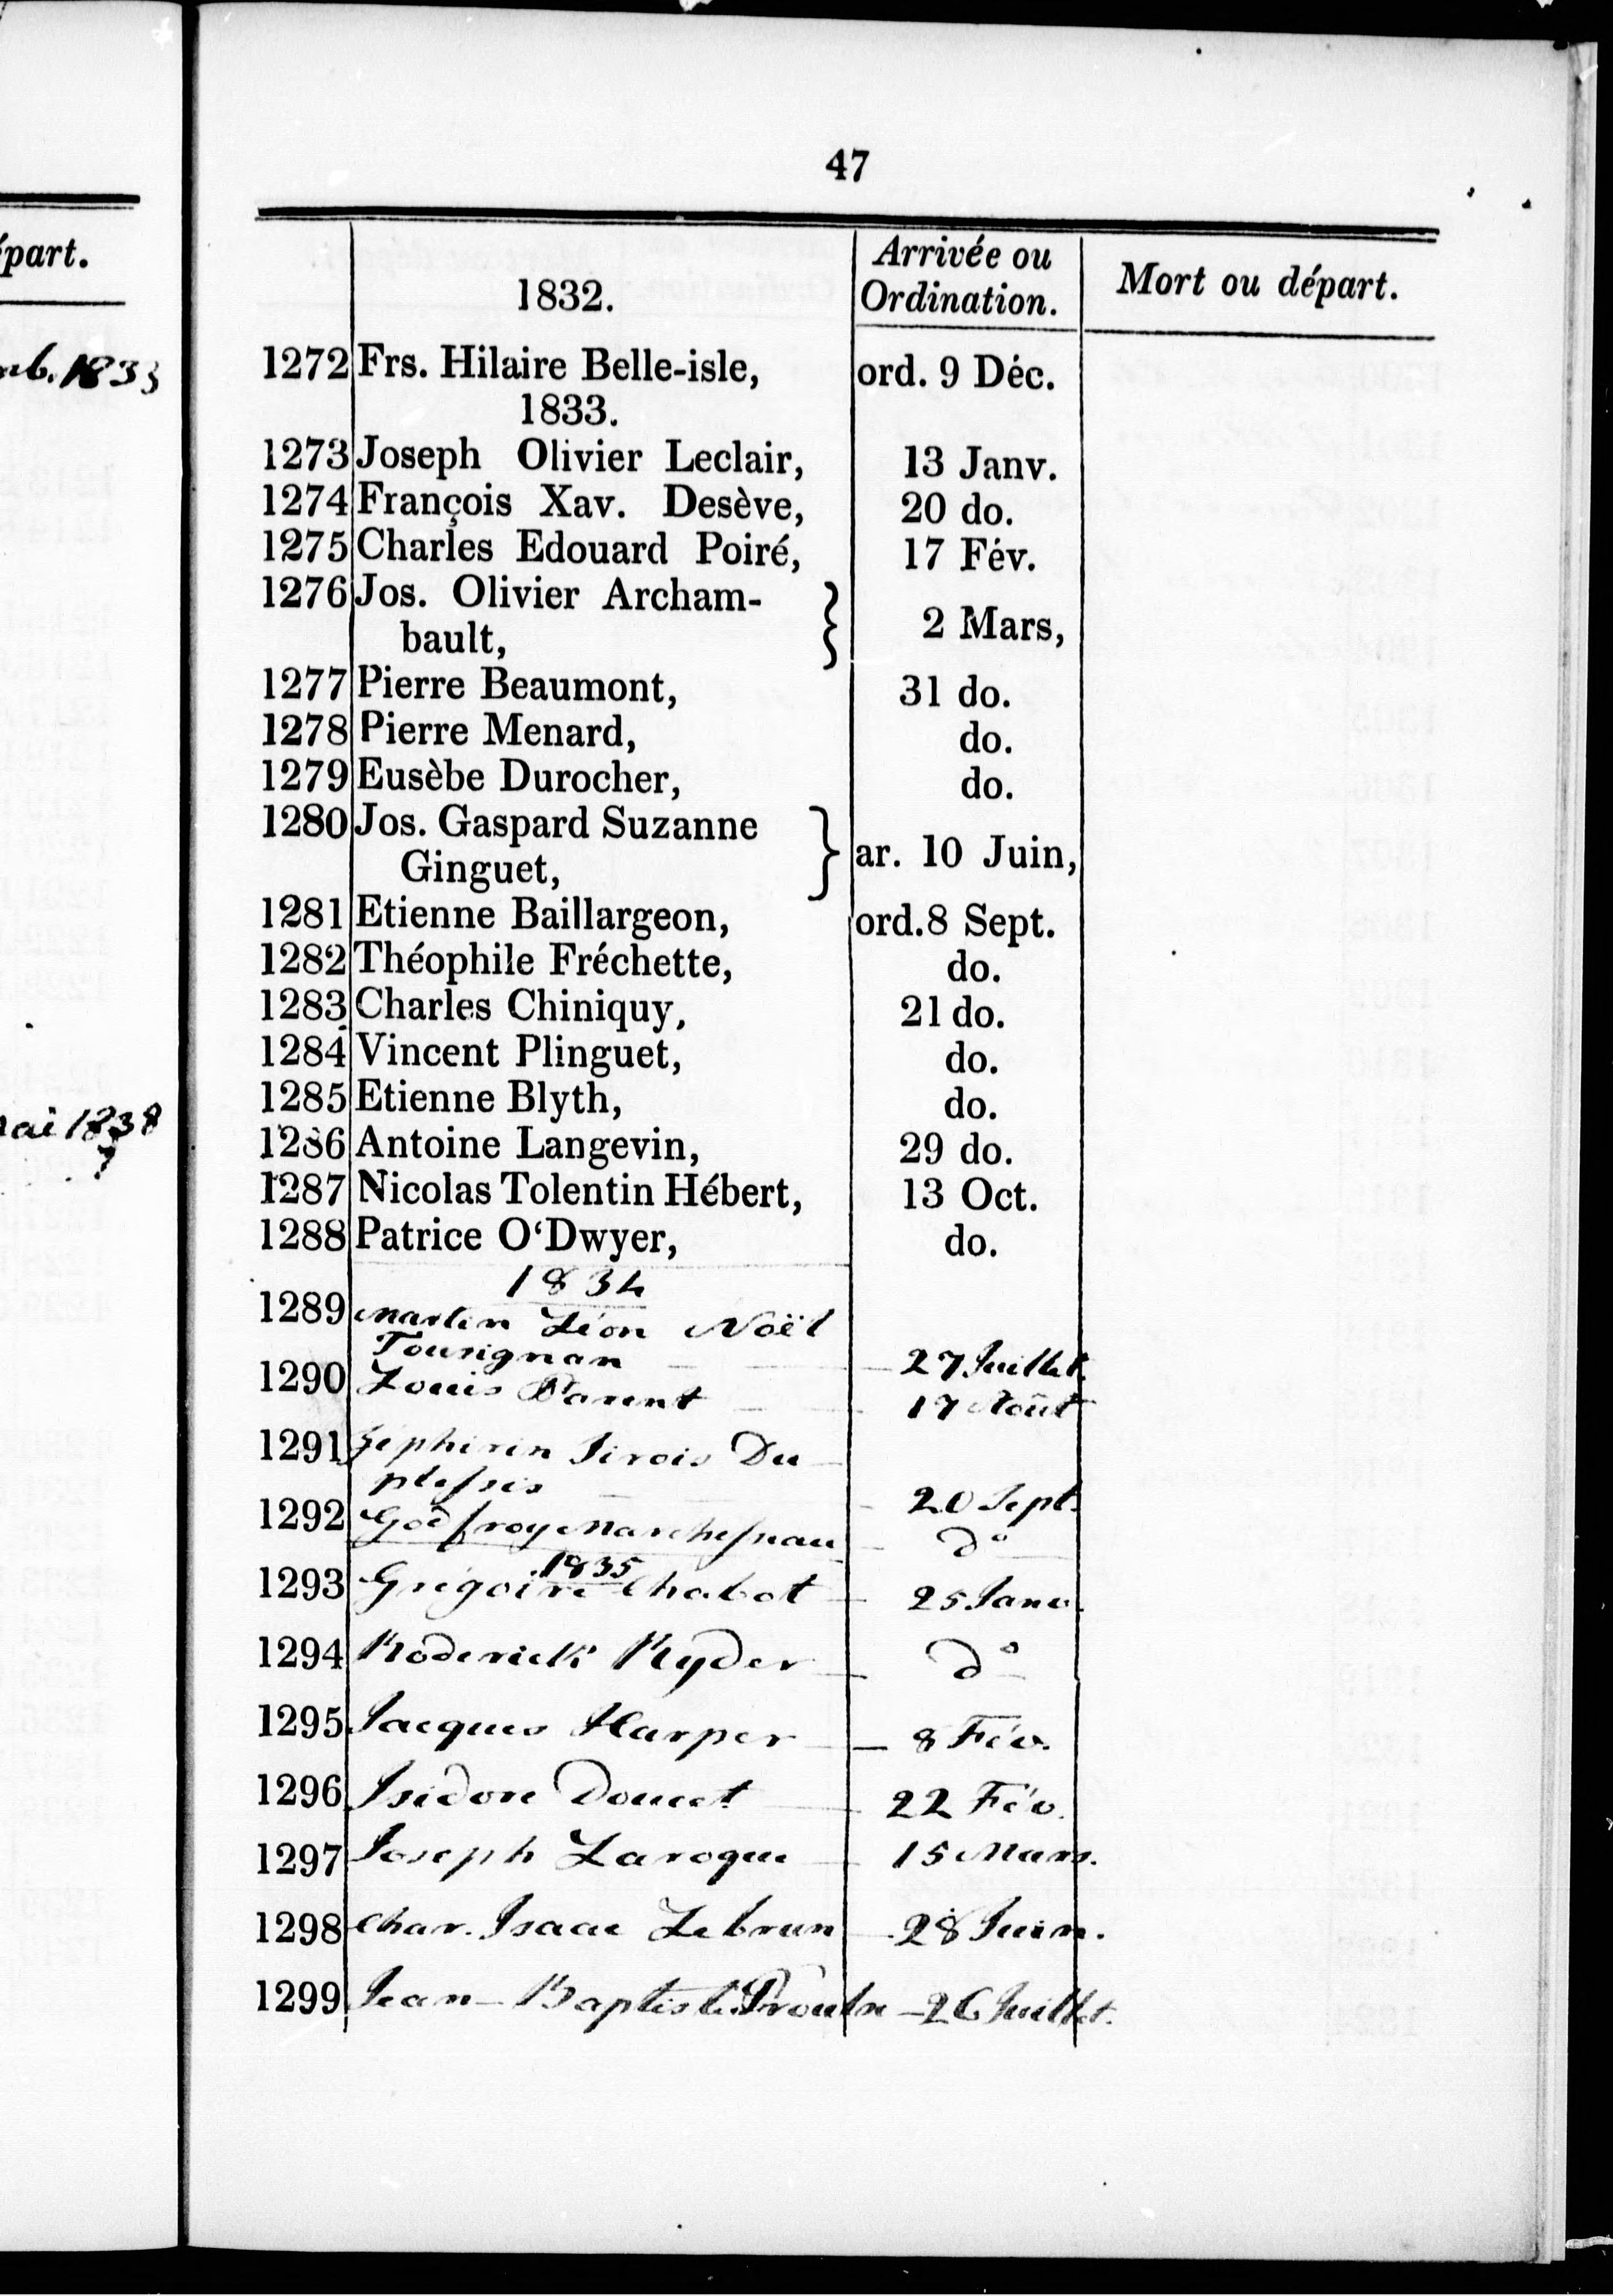 47
épart.
Arrivée ou
1832.
Ordination.
Mort ou départ.
1272 Frs. Hilaire Belle-isle, ord. 9 Déc.
1833
1833.
1273 Joseph Olivier Leclair, 13 Janv.
1274 François Xav. Desève, 20 do.
1275 Charles Edouard Poiré, 17 Fév.
1276 Jos. Olivier Archam-
bault, 2 Mars,
1277 Pierre Beaumont, 31 do.
1278 Pierre Menard, do.
1279 Eusèbe Durocher, do.
1280 Jos. Gaspard Suzanne
Ginguet, ar. 10 Juin,
1281 Etienne Baillargeon, ord. 8 Sept.
1282 Théophile Fréchette, do.
1283 Charles Chiniquy, 21 do.
1284 Vincent Plinguet, do.
1285 Etienne Blyth, do.
1838
1286 Antoine Langevin, 29 do.
1287 Nicolas Tolentin Hébert, 13 Oct.
1288 Patrice O‘Dwyer, do.
1834
1289 Martin Léon Noël
Tousignan 27 Juillet
1290 Louis Parent 17 Août
1291 Zéphirin Sirois Du
plessis 20 Sept.
1292 Godfroy Marchesseau do
1835
1293 Grégoire Chabot 25 Janv.
1294 Roderick Ryder do
1295 Jacques Harper 8 Fév.
1296 Isidore Doucet 22 Fév.
1297 Joseph Laroque 15 Mars.
1298 Char. Isaac Lebrun 28 Juin.
1299 Jean-Baptiste Proulx 26 Juillet.